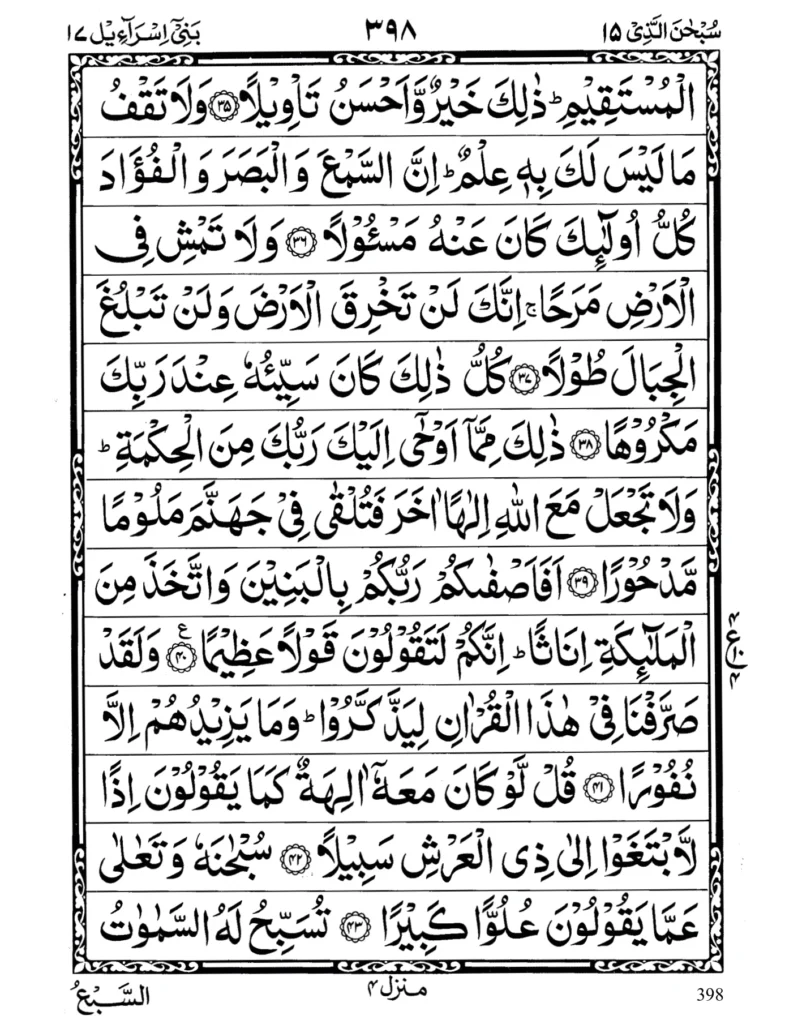 سُبْحٰنَ الَّذِیْ ۱۵
۳۹۸
بَنِیْۤ اِسْرَآءِیْل ۱۷
الْمُسْتَقِیْمِ ؕ ذٰلِكَ خَیْرٌ وَّاَحْسَنُ تَاْوِیْلًا ﴿۳۵﴾ وَلَا تَقْفُ
مَا لَیْسَ لَكَ بِهٖ عِلْمٌ ؕ اِنَّ السَّمْعَ وَالْبَصَرَ وَالْفُؤَادَ
كُلُّ اُولٰٓئِكَ كَانَ عَنْهُ مَسْئُوْلًا ﴿۳۶﴾ وَلَا تَمْشِ فِی
الْاَرْضِ مَرَحًا ۚ اِنَّكَ لَنْ تَخْرِقَ الْاَرْضَ وَلَنْ تَبْلُغَ
الْجِبَالَ طُوْلًا ﴿۳۷﴾ كُلُّ ذٰلِكَ كَانَ سَیِّئُهٗ عِنْدَ رَبِّكَ
مَكْرُوْهًا ﴿۳۸﴾ ذٰلِكَ مِمَّاۤ اَوْحٰۤی اِلَیْكَ رَبُّكَ مِنَ الْحِكْمَةِ ؕ
وَلَا تَجْعَلْ مَعَ اللّٰهِ اِلٰهًا اٰخَرَ فَتُلْقٰی فِیْ جَهَنَّمَ مَلُوْمًا
مَّدْحُوْرًا ﴿۳۹﴾ اَفَاَصْفٰىكُمْ رَبُّكُمْ بِالْبَنِیْنَ وَاتَّخَذَ مِنَ
الْمَلٰٓئِكَةِ اِنَاثًا ؕ اِنَّكُمْ لَتَقُوْلُوْنَ قَوْلًا عَظِیْمًا ﴿۴۰﴾ ع وَلَقَدْ
صَرَّفْنَا فِیْ هٰذَا الْقُرْاٰنِ لِیَذَّكَّرُوْا ؕ وَمَا یَزِیْدُهُمْ اِلَّا
نُفُوْرًا ﴿۴۱﴾ قُلْ لَّوْ كَانَ مَعَهٗۤ اٰلِهَةٌ كَمَا یَقُوْلُوْنَ اِذًا
لَّابْتَغَوْا اِلٰی ذِی الْعَرْشِ سَبِیْلًا ﴿۴۲﴾ سُبْحٰنَهٗ وَتَعٰلٰی
عَمَّا یَقُوْلُوْنَ عُلُوًّا كَبِیْرًا ﴿۴۳﴾ تُسَبِّحُ لَهُ السَّمٰوٰتُ
السَّبْعُ
منزل ۴
398